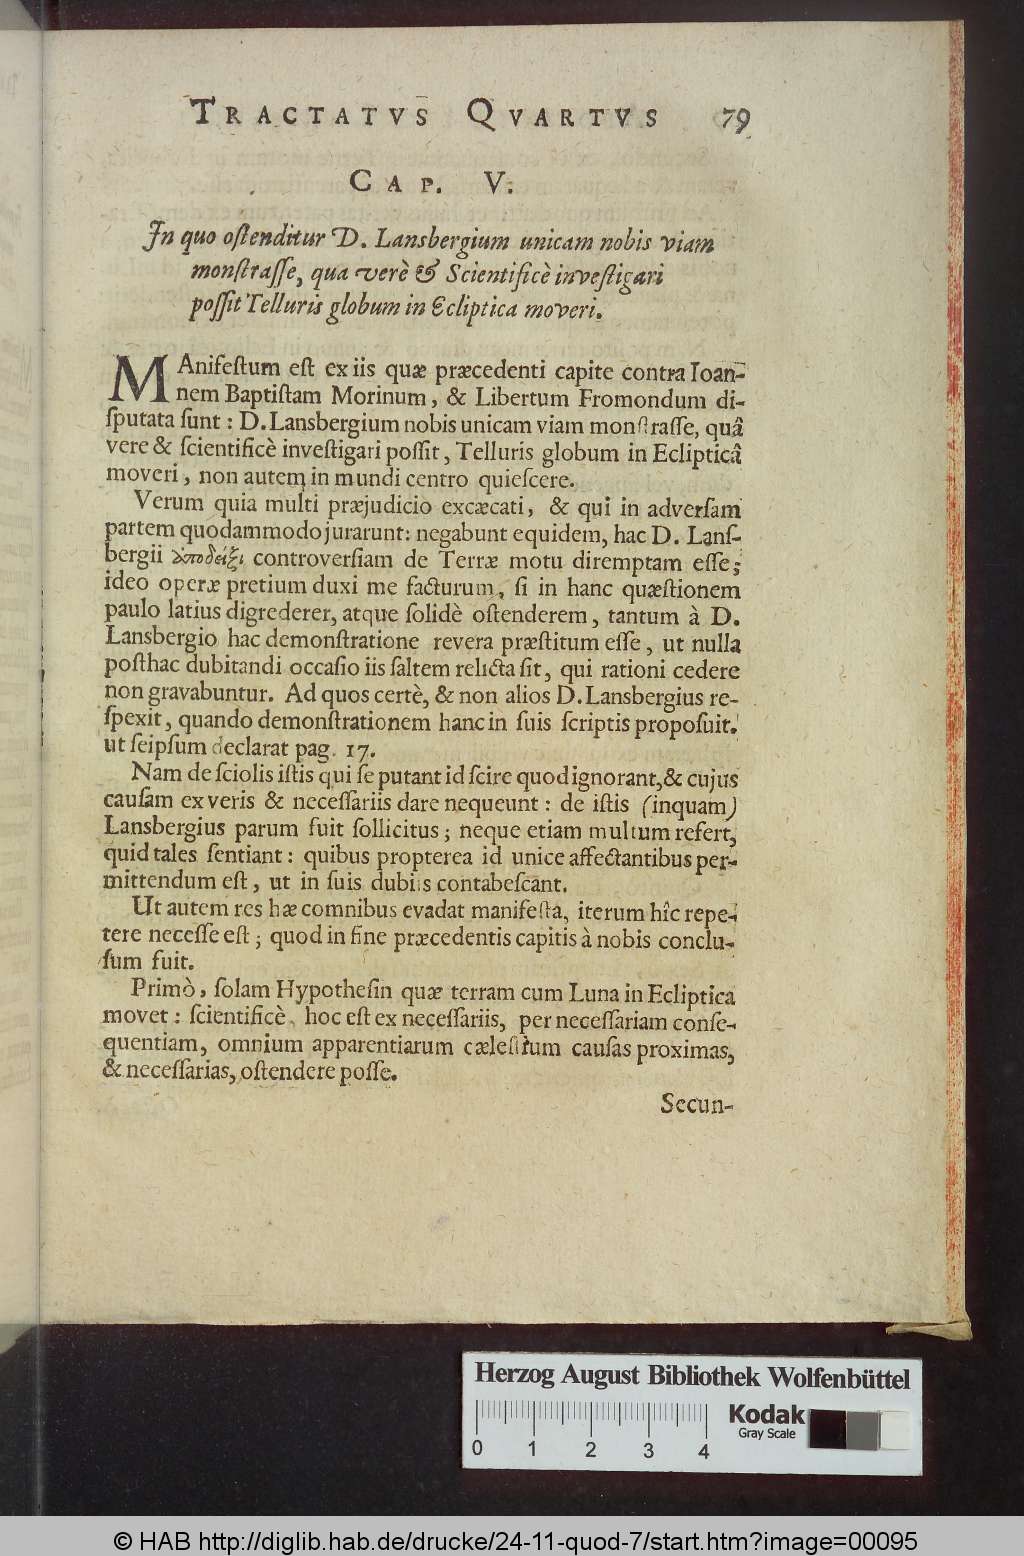 TRACTATVS QVARTVS 79
CAP. V.
In quo oſtenditur D. Lansbergium unicam nobis viam
monſtraſſe, qua verè & Scientificè inveſtigari
poſſit Telluris globum in Ecliptica moveri.
MAnifeſtum eſt ex iis quæ præcedenti capite contra Ioan-
nem Baptiſtam Morinum, & Libertum Fromondum di-
ſputata ſunt: D. Lansbergium nobis unicam viam monſtraſſe, quâ
vere & ſcientificè inveſtigari poſſit, Telluris globum in Eclipticâ
moveri, non autem in mundi centro quieſcere.
Verum quia multi præjudicio excæcati, & qui in adverſam
partem quodammodo jurarunt: negabunt equidem, hac D. Lanſ-
bergii ἀποδείξι controverſiam de Terræ motu diremptam eſſe;
ideo operæ pretium duxi me facturum, ſi in hanc quæſtionem
paulo latius digrederer, atque ſolidè oſtenderem, tantum à D.
Lansbergio hac demonſtratione revera præſtitum eſſe, ut nulla
poſthac dubitandi occaſio iis ſaltem relicta ſit, qui rationi cedere
non gravabuntur. Ad quos certè, & non alios D. Lansbergius re-
ſpexit, quando demonſtrationem hanc in ſuis ſcriptis propoſuit.
ut ſeipſum declarat pag. 17.
Nam de ſciolis iſtis qui ſe putant id ſcire quod ignorant, & cujus
cauſam ex veris & neceſſariis dare nequeunt: de iſtis (inquam)
Lansbergius parum fuit ſollicitus; neque etiam multum refert,
quid tales ſentiant: quibus propterea id unice affectantibus per-
mittendum eſt, ut in ſuis dubiis contabeſcant.
Ut autem res hæc omnibus evadat manifeſta, iterum hîc repe-
tere neceſſe eſt; quod in fine præcedentis capitis à nobis conclu-
ſum fuit.
Primò, ſolam Hypotheſin quæ terram cum Luna in Ecliptica
movet: ſcientificè, hoc eſt ex neceſſariis, per neceſſariam conſe-
quentiam, omnium apparentiarum cæleſtium cauſas proximas,
& neceſſarias, oſtendere poſſe.
Secun-
Herzog August Bibliothek Wolfenbüttel
0 1 2 3 4
Kodak
Gray Scale
© HAB http://diglib.hab.de/drucke/24-11-quod-7/start.htm?image=00095